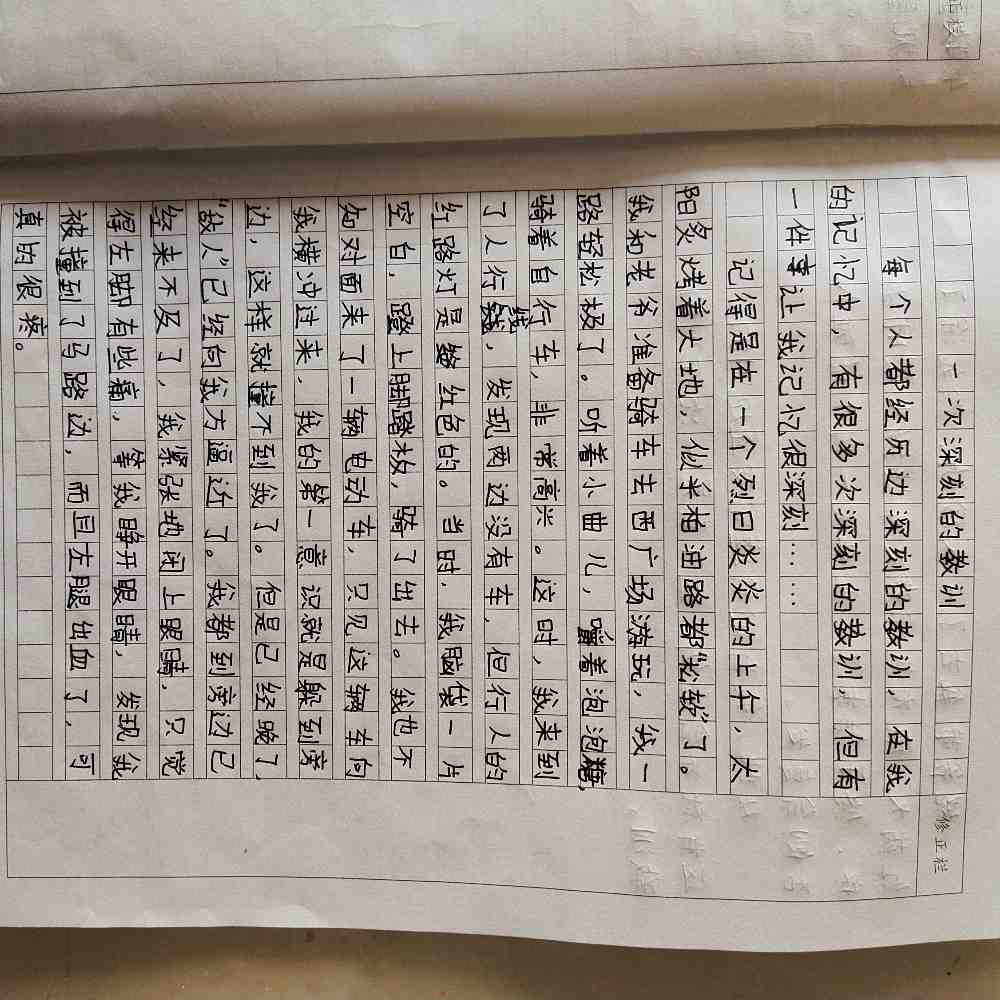 一次深刻的教训
每个人都经历边深刻的教训，在我
的记忆中，有很多次深刻的教训，但有
一件事让我记忆很深刻……
记得是在一个烈日炎炎的上午，太
阳炙烤着大地，似乎柏油路都“松软”了。
我和老爷准备骑车去西广场游玩，我一
路轻松极了。听着小曲儿，嚼着泡泡糖，
骑着自行车，非常高兴。这时，我来到
了人行线，发现两边没有车，但行人的
红路灯是红色的。当时，我脑袋一片
空白，蹬上脚踏板，骑了出去。我也不
知对面来了一辆电动车，只见这辆车向
我横冲过来，我的第一意识就是躲到旁
边，这样就撞不到我了。但是已经晚了，
“敌人”已经向我方逼近了。我都到旁边已
经来不及了，我紧张地闭上眼睛，只觉
得左脚有些痛，等我睁开眼睛，发现我
被撞到了马路边，而且左腿出血了，可
真的很疼。
修正栏